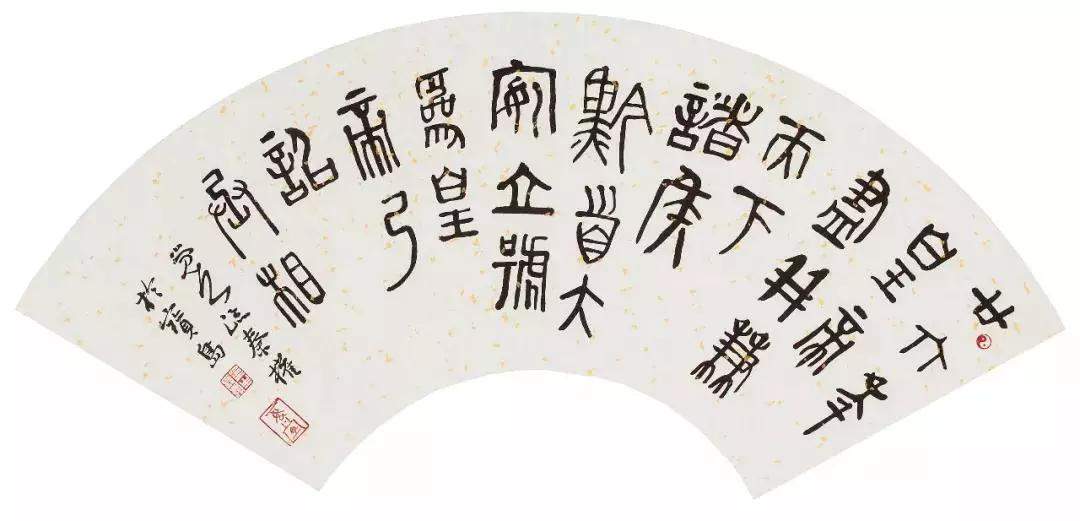 廿六年
皇帝
盡并兼
天下
諸侯
黔首大
安立號
為皇
帝乃
詔
丞相
臨秦權
於寶島